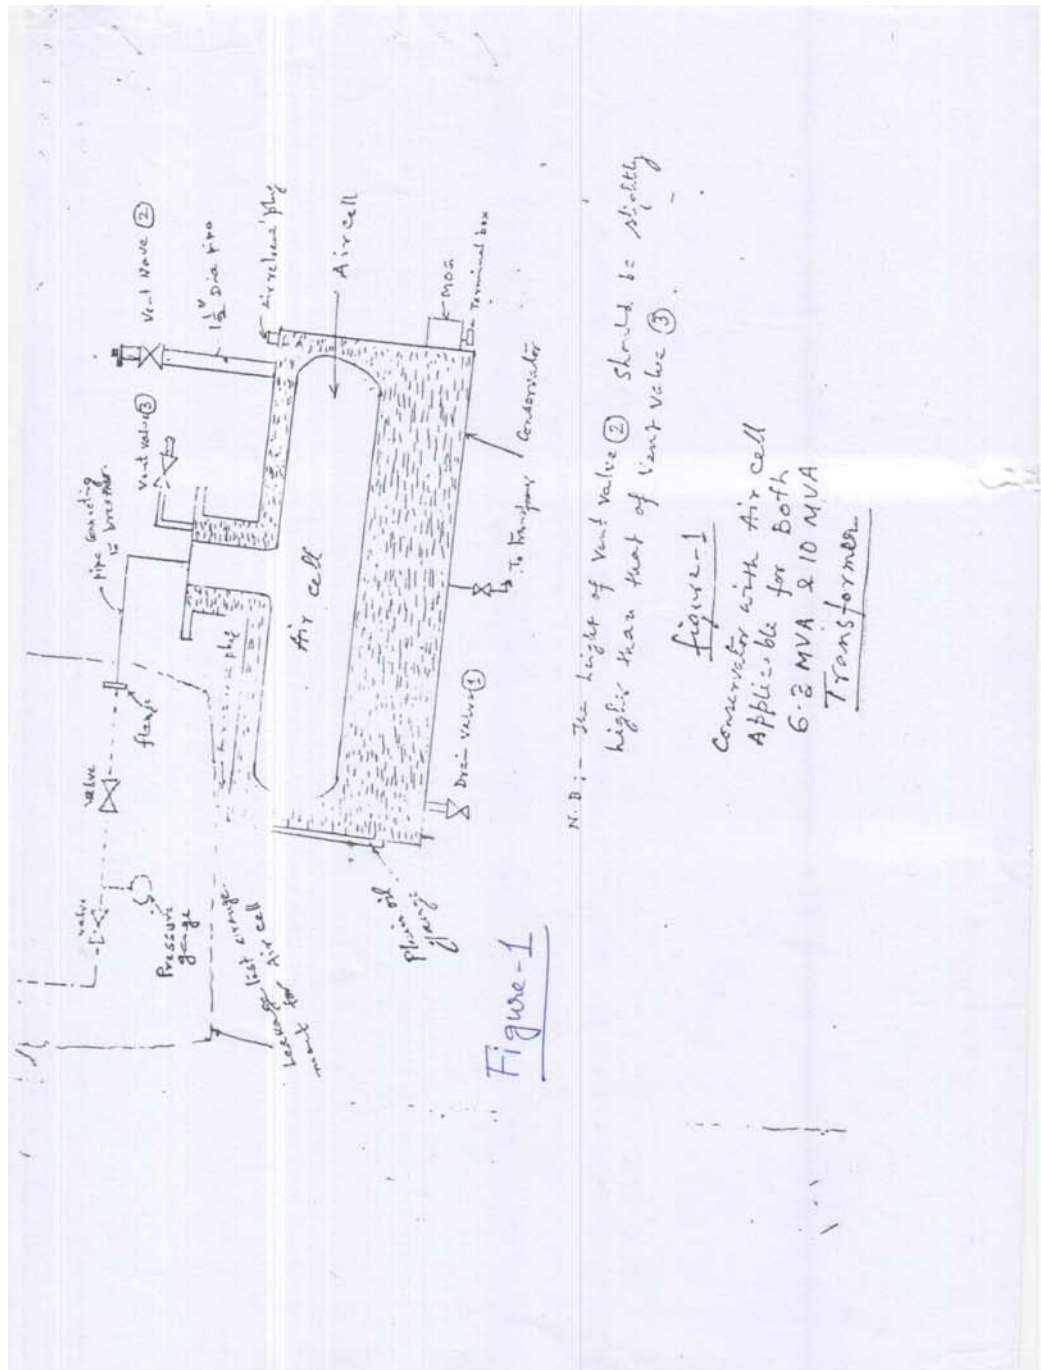 Vent Vave ②
1½" Dia pipe
Air release plug
Air cell
MOG
Terminal box
Vent valve ③
pipe connecting
to breather.
flange
valve
valve
Pressure
gauge
Leakage test arrange-
ment for Air cell
Air cell
plug
Conservator
To Transformer
Drain valve ①
Plain oil
gauge
N.B :- The hight of vent valve ② Should be slightly
higher than that of vent valve ③.
figure-1
Conservator with Air cell
Applicable for both
6.3 MVA & 10 MVA
Transformer
Figure-1